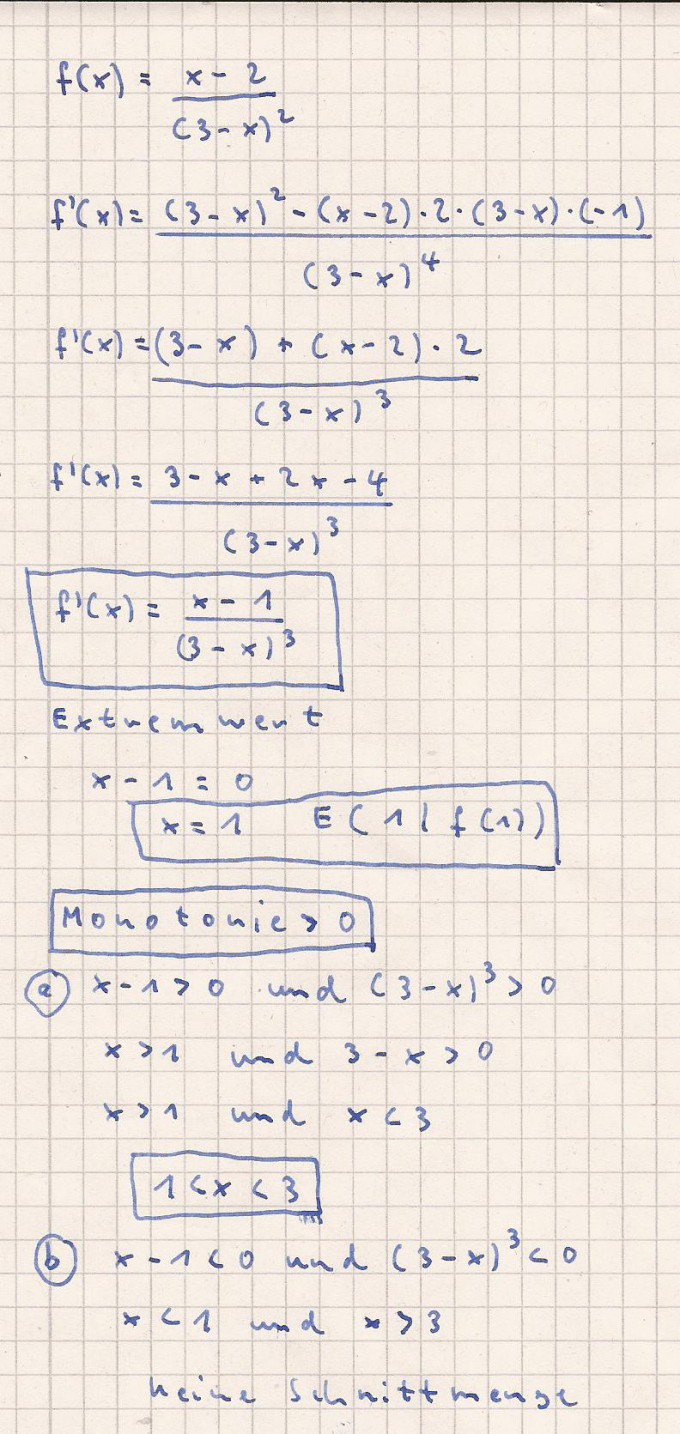 f(x) = (x - 2) / (3 - x)²
f'(x) = ((3 - x)² - (x - 2) · 2 · (3 - x) · (-1)) / (3 - x)⁴
f'(x) = ((3 - x) + (x - 2) · 2) / (3 - x)³
f'(x) = (3 - x + 2x - 4) / (3 - x)³
f'(x) = (x - 1) / (3 - x)³
Extremwert
x - 1 = 0
x = 1 E ( 1 | f(1))
Monotonie > 0
a x - 1 > 0 und (3 - x)³ > 0
x > 1 und 3 - x > 0
x > 1 und x < 3
1 < x < 3
b x - 1 < 0 und (3 - x)³ < 0
x < 1 und x > 3
keine Schnittmenge